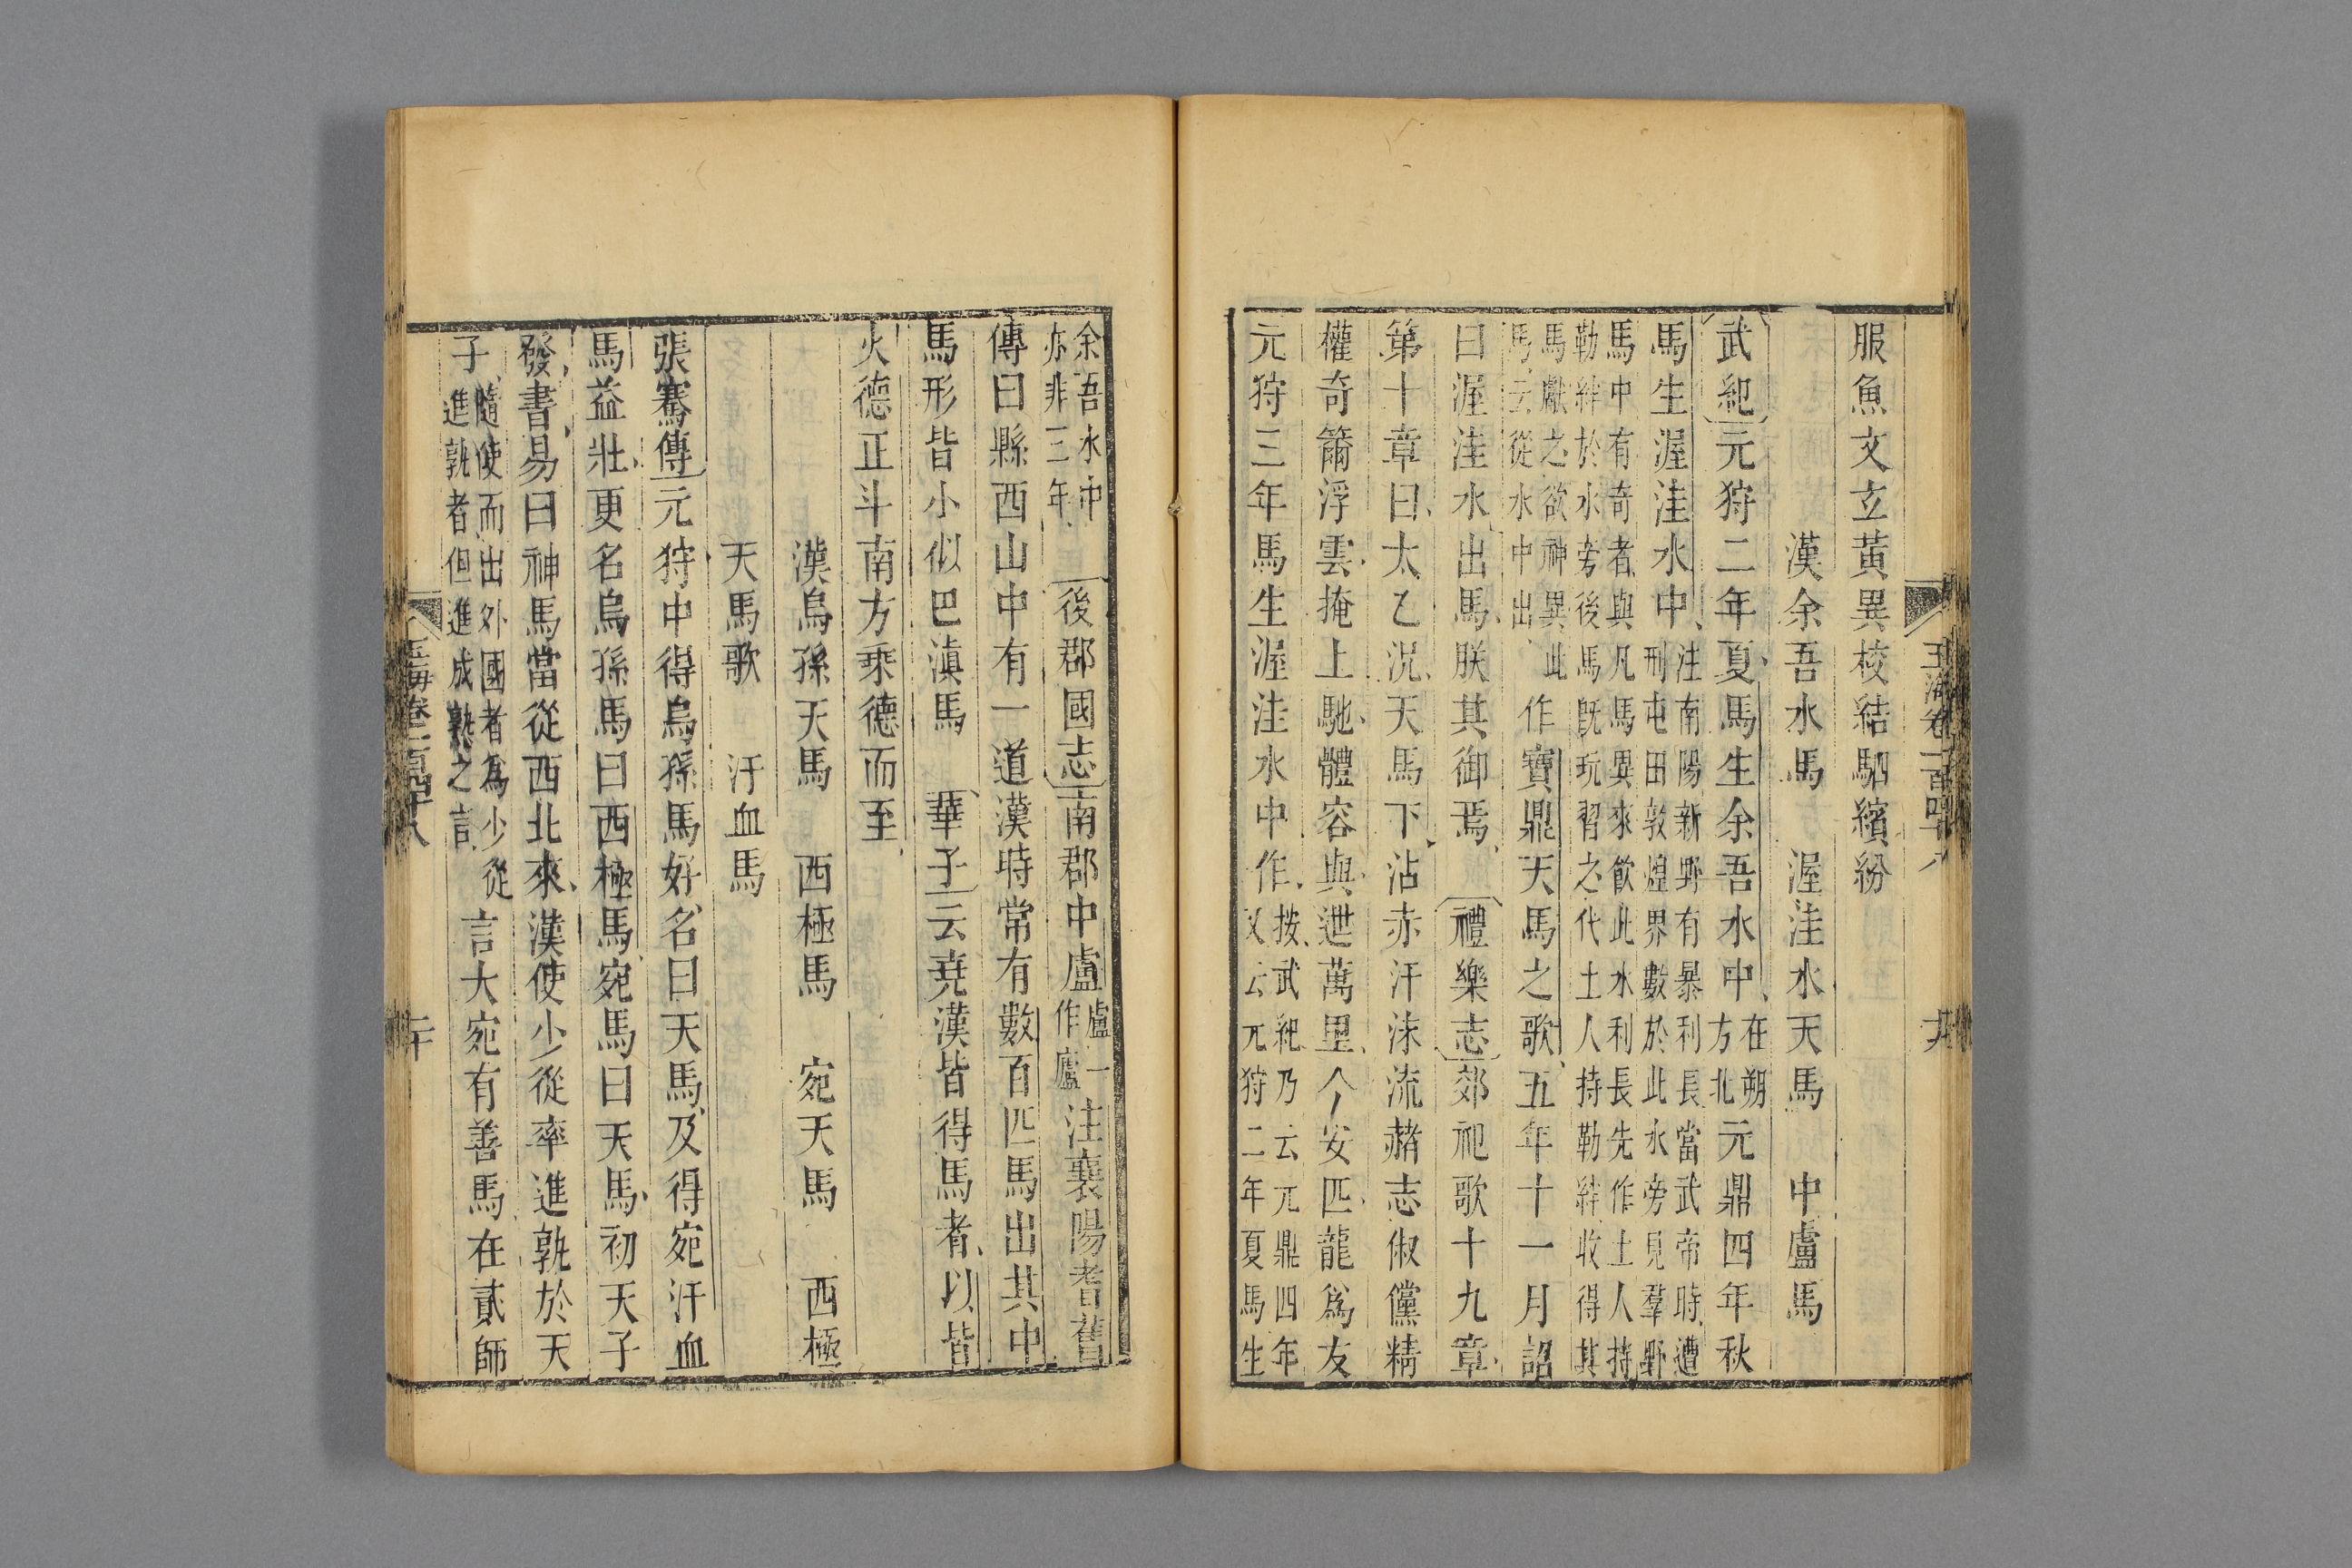 玉海卷一百四十八
十九
服魚文玄黃異校結駟繽紛
漢余吾水馬 渥洼水天馬 中盧馬
武紀元狩二年夏馬生余吾水中在朔方北元鼎四年秋
馬生渥洼水中注南陽新野有暴利長當武帝時遭刑屯田敦煌界數於此水旁見羣野
馬中有奇者與凡馬異來飲此水利長先作土人持勒絆於水旁後馬旣玩習之代土人持勒絆收得其
馬獻之欲神異此馬云從水中出作寶鼎天馬之歌五年十一月詔
曰渥洼水出馬朕其御焉禮樂志郊祀歌十九章
第十章曰太乙況天馬下沾赤汗沬流赭志俶儻精
權奇籋浮雲掩上馳體容與迣萬里今安匹龍爲友
元狩三年馬生渥洼水中作按武紀乃云元鼎四年又云元狩二年夏馬生
余吾水中亦非三年後郡國志南郡中盧盧一作廬注襄陽耆舊
傳曰縣西山中有一道漢時常有數百匹馬出其中
馬形皆小似巴滇馬 華子云堯漢皆得馬者以皆
火德正斗南方乘德而至
漢烏孫天馬 西極馬 宛天馬 西極
天馬歌 汗血馬
張騫傳元狩中得烏孫馬好名曰天馬及得宛汗血
馬益壯更名烏孫馬曰西極馬宛馬曰天馬初天子
發書易曰神馬當從西北來漢使少從率進孰於天
子隨使而出外國者爲少從進孰者但進成熟之言言大宛有善馬在貳師
玉海卷一百四十八
二十